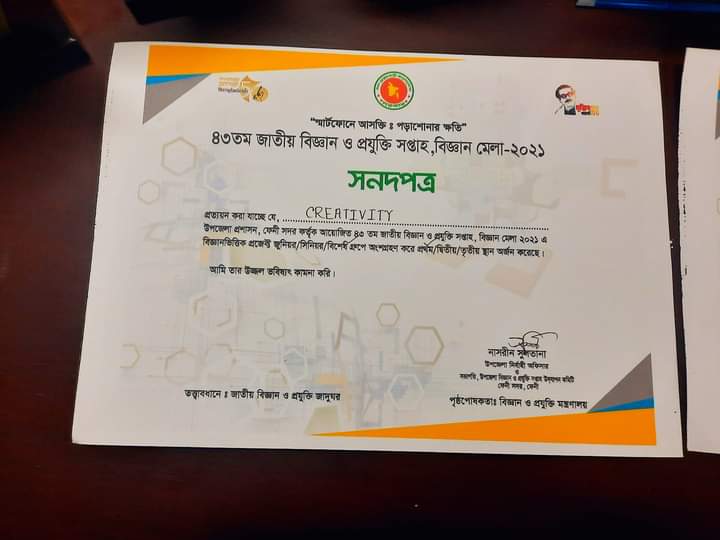 "স্মার্টফোনে আসক্তি ঃ পড়াশোনার ক্ষতি"
৪৩তম জাতীয় বিজ্ঞান ও প্রযুক্তি সপ্তাহ,বিজ্ঞান মেলা-২০২১
সনদপত্র
প্রত্যয়ন করা যাচ্ছে যে, CREATIVITY
উপজেলা প্রশাসন, ফেনী সদর কর্তৃক আয়োজিত ৪৩ তম জাতীয় বিজ্ঞান ও প্রযুক্তি সপ্তাহ, বিজ্ঞান মেলা ২০২১ এ
বিজ্ঞানভিত্তিক প্রজেক্ট জুনিয়র/সিনিয়র/বিশেষ গ্রুপে অংশগ্রহণ করে প্রথম/দ্বিতীয়/তৃতীয় স্থান অর্জন করেছে।
আমি তার উজ্জল ভবিষ্যৎ কামনা করি।
নাসরীন সুলতানা
উপজেলা নির্বাহী অফিসার
ও
সভাপতি, উপজেলা বিজ্ঞান ও প্রযুক্তি সপ্তাহ উদযাপন কমিটি
ফেনী সদর, ফেনী
তত্ত্বাবধানে ঃ জাতীয় বিজ্ঞান ও প্রযুক্তি জাদুঘর
পৃষ্ঠপোষকতাঃ বিজ্ঞান ও প্রযুক্তি মন্ত্রণালয়